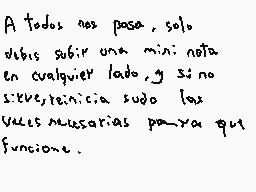 A todos nos pasa, solo
debis subir una mini nota
en cualquier lado, y si no
sirve, reinicia sudo las
veces necesarias para que
funcione.